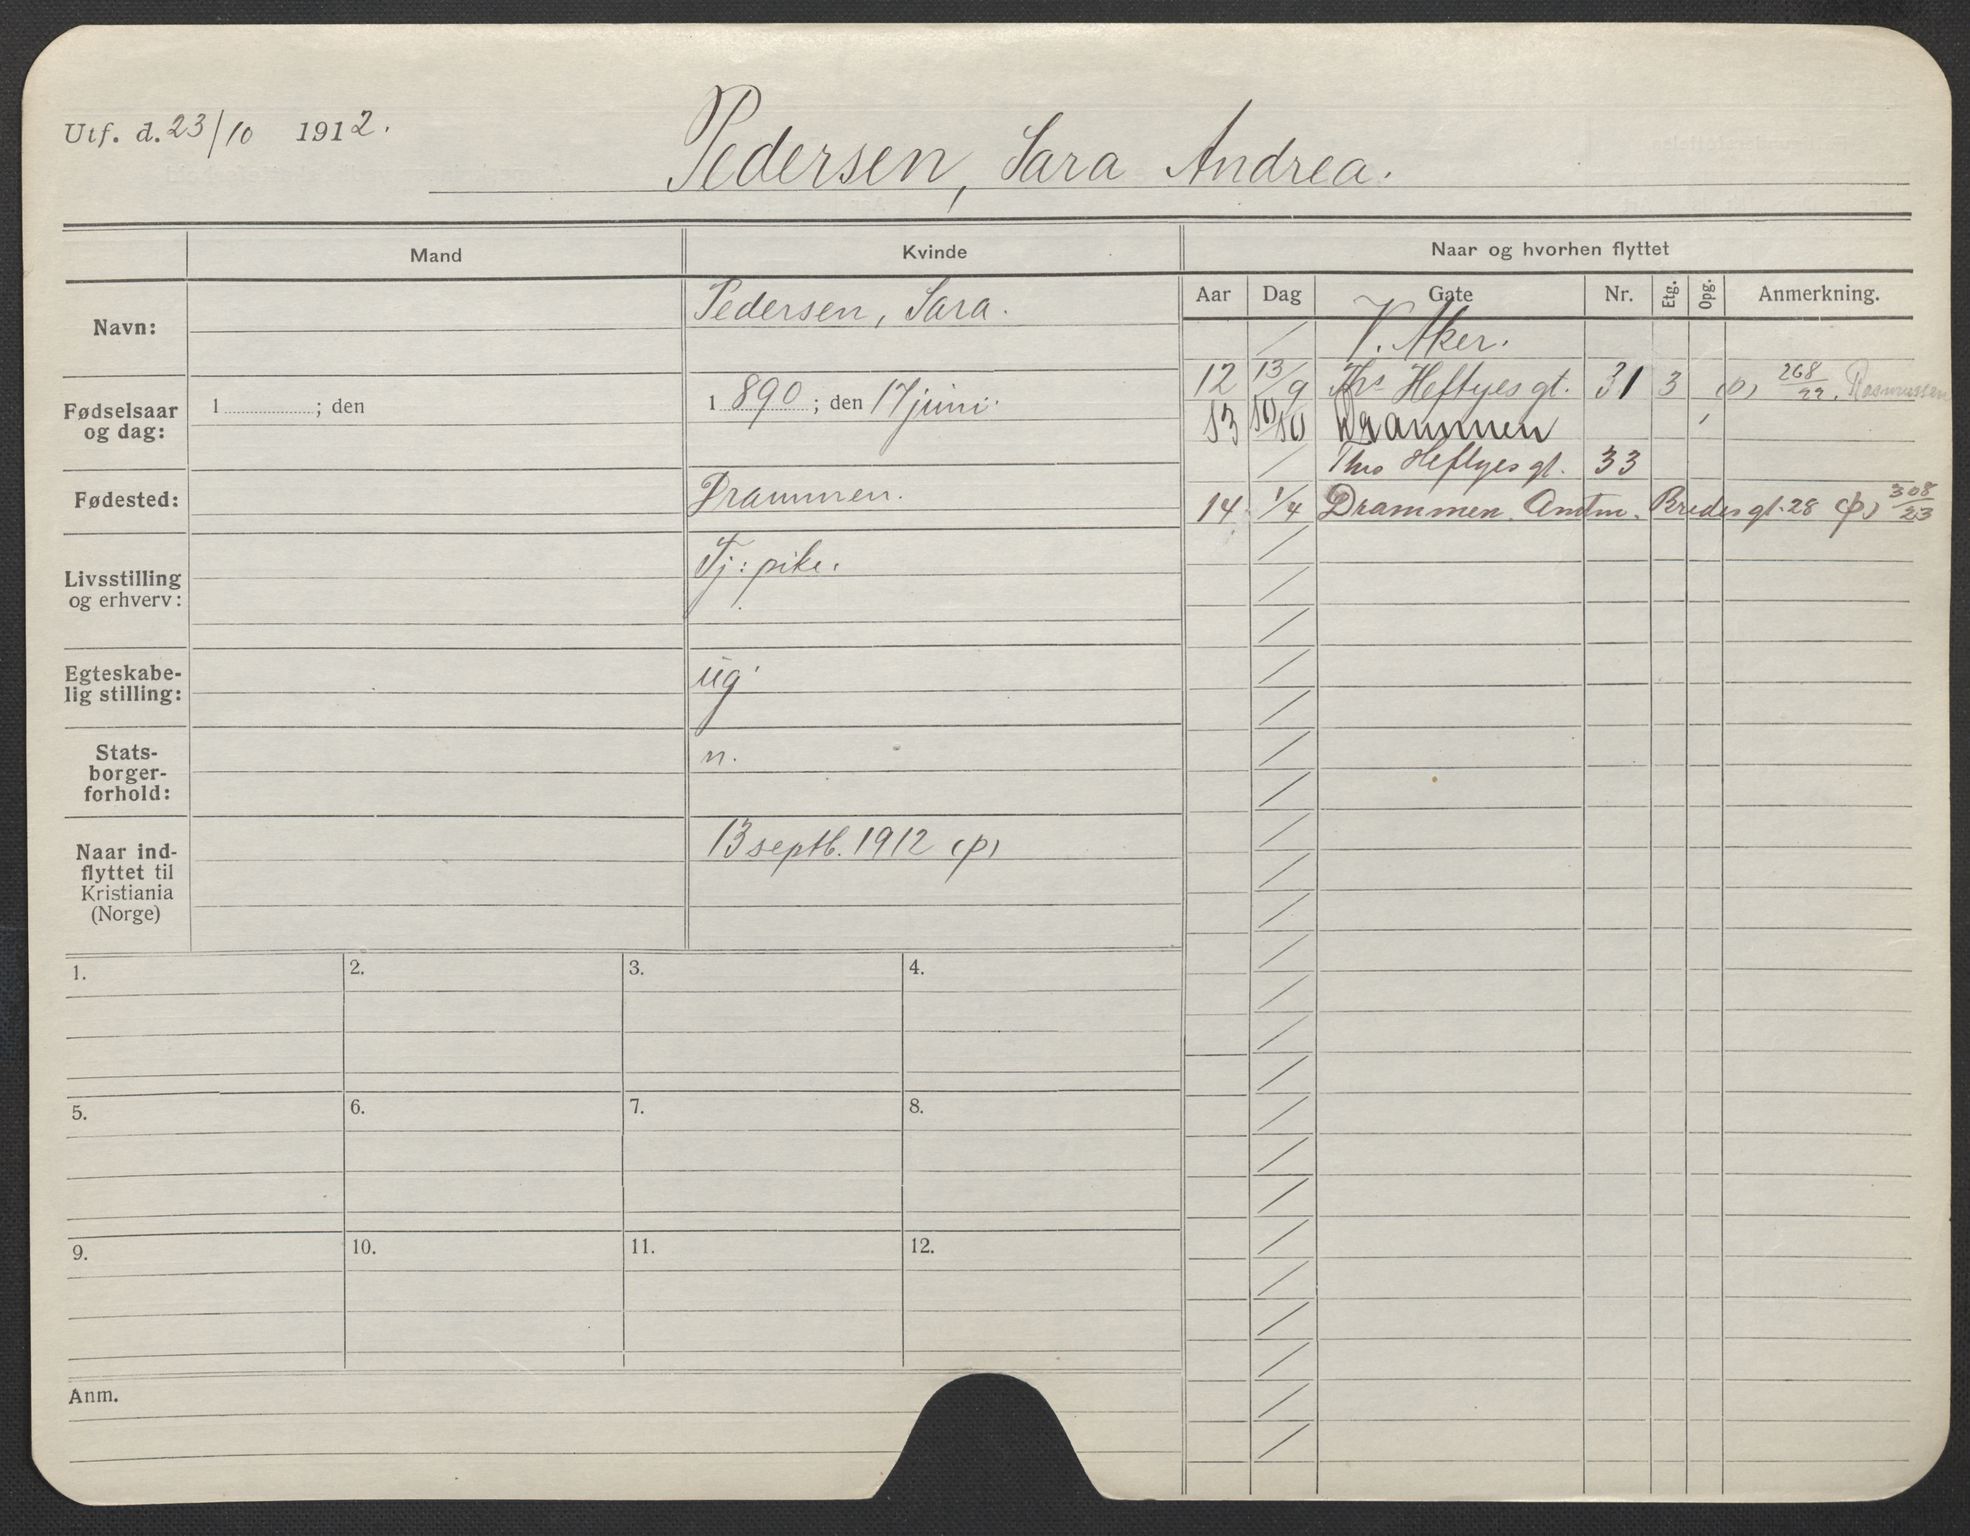 Utf. d. 23/10 1912.
Pedersen, Sara Andrea.
Mand
Kvinde
Naar og hvorhen flyttet
Aar Dag Gate Nr. Etg. Opg. Anmerkning.
Navn:
Pedersen, Sara.
Fødselsaar
og dag:
1 ; den
1 890 ; den 17 juni.
Fødested:
Drammen.
Livsstilling
og erhverv:
Tj: pike.
Egteskabe-
lig stilling:
ug
Stats-
borger-
forhold:
n.
Naar ind-
flyttet til
Kristiania
(Norge)
13 septb. 1912 (p)
V. Aker.
12 13/9 Ths Heftyes gt. 31 3 (p) 268/22. Rasmussen
13 10/10 Drammen
Ths Heftyes gt. 33
14 1/4 Drammen. Amtm. Bredes gt. 28 (p) 308/23
1.
2.
3.
4.
5.
6.
7.
8.
9.
10.
11.
12.
Anm.